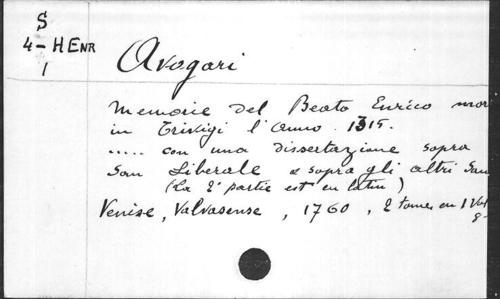 S
4-HENR
1
Avogari
Memorie del Beato Enrico mor
in Trivigi l'anno 1315.
..... con una dissertazione sopra
San Liberale e sopra gli altri San
(La 2e partie est en latin)
Venise, Valvasense, 1760, 2 tomes en 1 Vol
8-